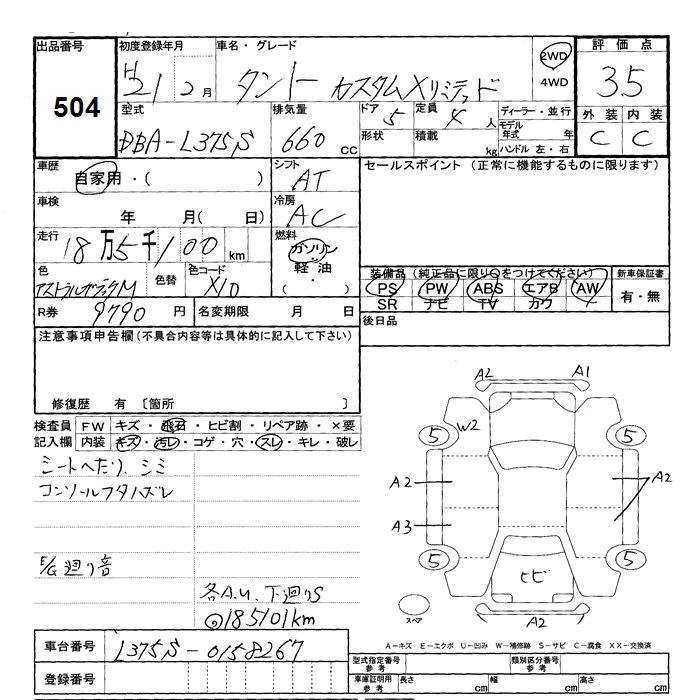 出品番号 504
初度登録年月 H21 2月
車名・グレード タント カスタムXリミテッド
2WD
4WD
評価点 3.5
型式 DBA-L375S
排気量 660 CC
ドア 5
形状
定員 4 人
積載 kg
ディーラー・並行
モデル年式 年
ハンドル 左・右
外装 内装
C C
車歴 自家用・( )
シフト AT
セールスポイント (正常に機能するものに限ります)
車検 年 月( 日)
冷房 AC
走行 18万5千100km
燃料 ガソリン
軽油
・
色 アストラルブラックM
色替
色コード X10
装備品(純正品に限り○をつけてください)
新車保証書
PS PW ABS エアB AW
SR ナビ TV カワ
有・無
R券 9790円
名変期限 月 日
後日品
注意事項申告欄(不具合内容等は具体的に記入して下さい)
修復歴 有〔箇所 〕
検査員 FW キズ・飛石・ヒビ割・リペア跡・×要
記入欄 内装 キズ・汚レ・コゲ・穴・スレ・キレ・破レ
シートへたり、シミ
コンソールフタハズレ
E/G廻り音
各A.U、下廻りS
185101km
A2 A1
W2
5 5
A2 A2
A3
5 5
ヒビ
スペア
A2
A-キズ E-エクボ U-凹み W-補修跡 S-サビ C-腐食 XX-交換済
車台番号 L375S-0158267
登録番号
型式指定番号 参考
類別区分番号 参考
車庫証明用 参考 長さ cm 幅 cm 高さ cm